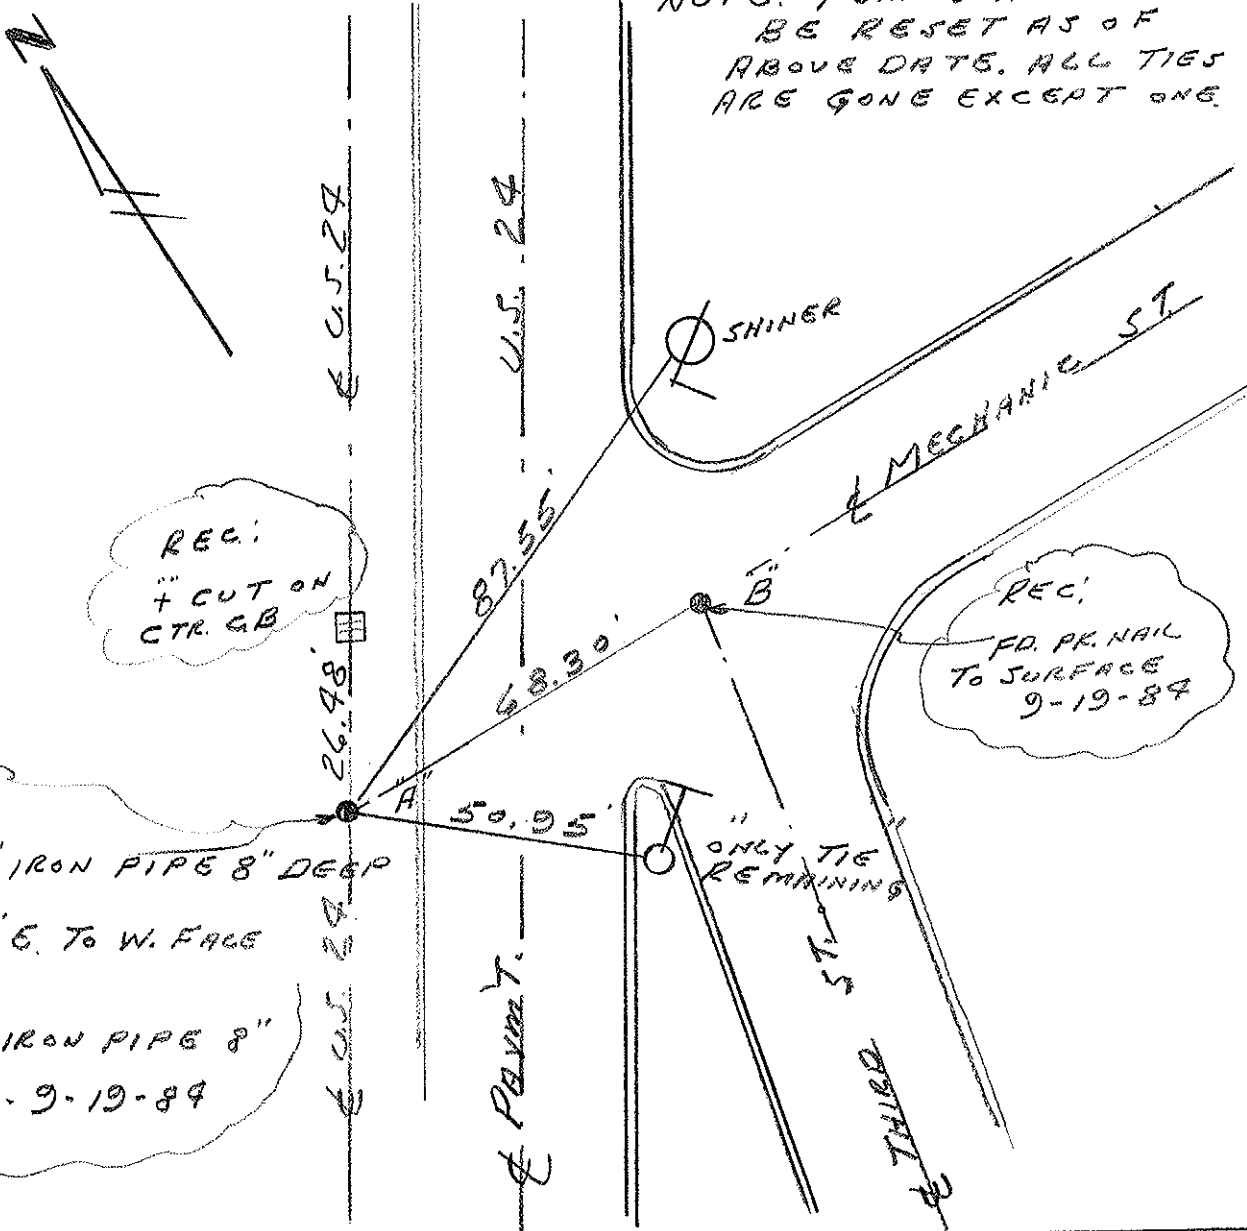 N
BE RESET AS OF
ABOVE DATE. ALL TIES
ARE GONE EXCEPT ONE.
℄ U.S. 24
U.S. 24
SHINER
℄ MECHANIC ST.
REC:
"+" CUT ON
CTR. CB
87.55'
"B"
REC:
FD. PK. NAIL
TO SURFACE
9-19-84
68.30'
26.48'
"A"
50.95'
" ONLY TIE
REMAINING "
" IRON PIPE 8" DEEP
' E. TO W. FACE
IRON PIPE 8"
- 9-19-84
℄ U.S. 24
℄ PAVM'T.
℄ THIRD ST.